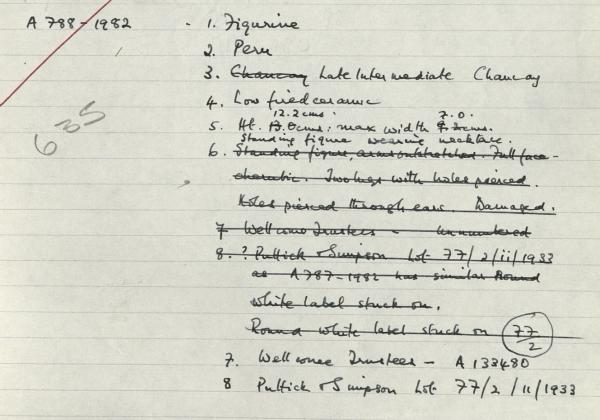 A 788-1982 - 1. Figurine
2. Peru
3. Chancay Late Intermediate Chancay
4. Low fired ceramic
12.2cms. 7.0.
5. Ht. 13.0cms: max width 7.3cms.
Standing figure wearing necklace.
6. Standing figure, arms outstretched. Full face -
cherubic. Two legs with holes pierced.
Holes pierced through ears. Damaged.
635
7 Wellcome Trustees - unnumbered
8. ? Puttick & Simpson Lot 77/2/ii/1933
as A787-1982 has similar Round
white label stuck on.
Round white label stuck on 77/2
7. Wellcome Trustees - A 133480
8 Puttick & Simpson Lot 77/2/11/1933